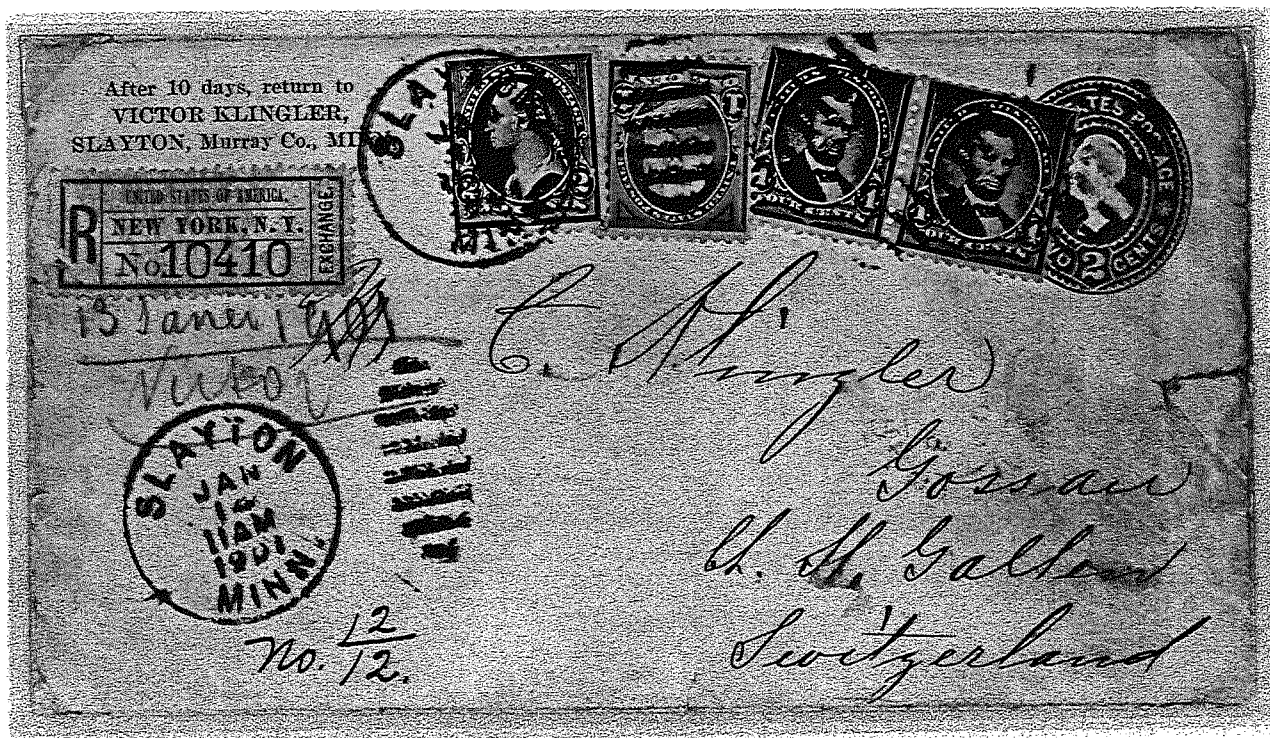 After 10 days, return to
VICTOR KLINGLER,
SLAYTON, Murray Co., MINN.
UNITED STATES OF AMERICA.
R
NEW YORK, N. Y.
No. 10410
EXCHANGE
13 Janu 1901
Victor
SLAYTON
JAN
14
11AM
1901
MINN.
No. 12/12.
SLAY
ONE CENT
ONE CENT
TES POSTAGE
2 CENTS
C. Klingler
Gossau
Ct. St. Gallen
Switzerland